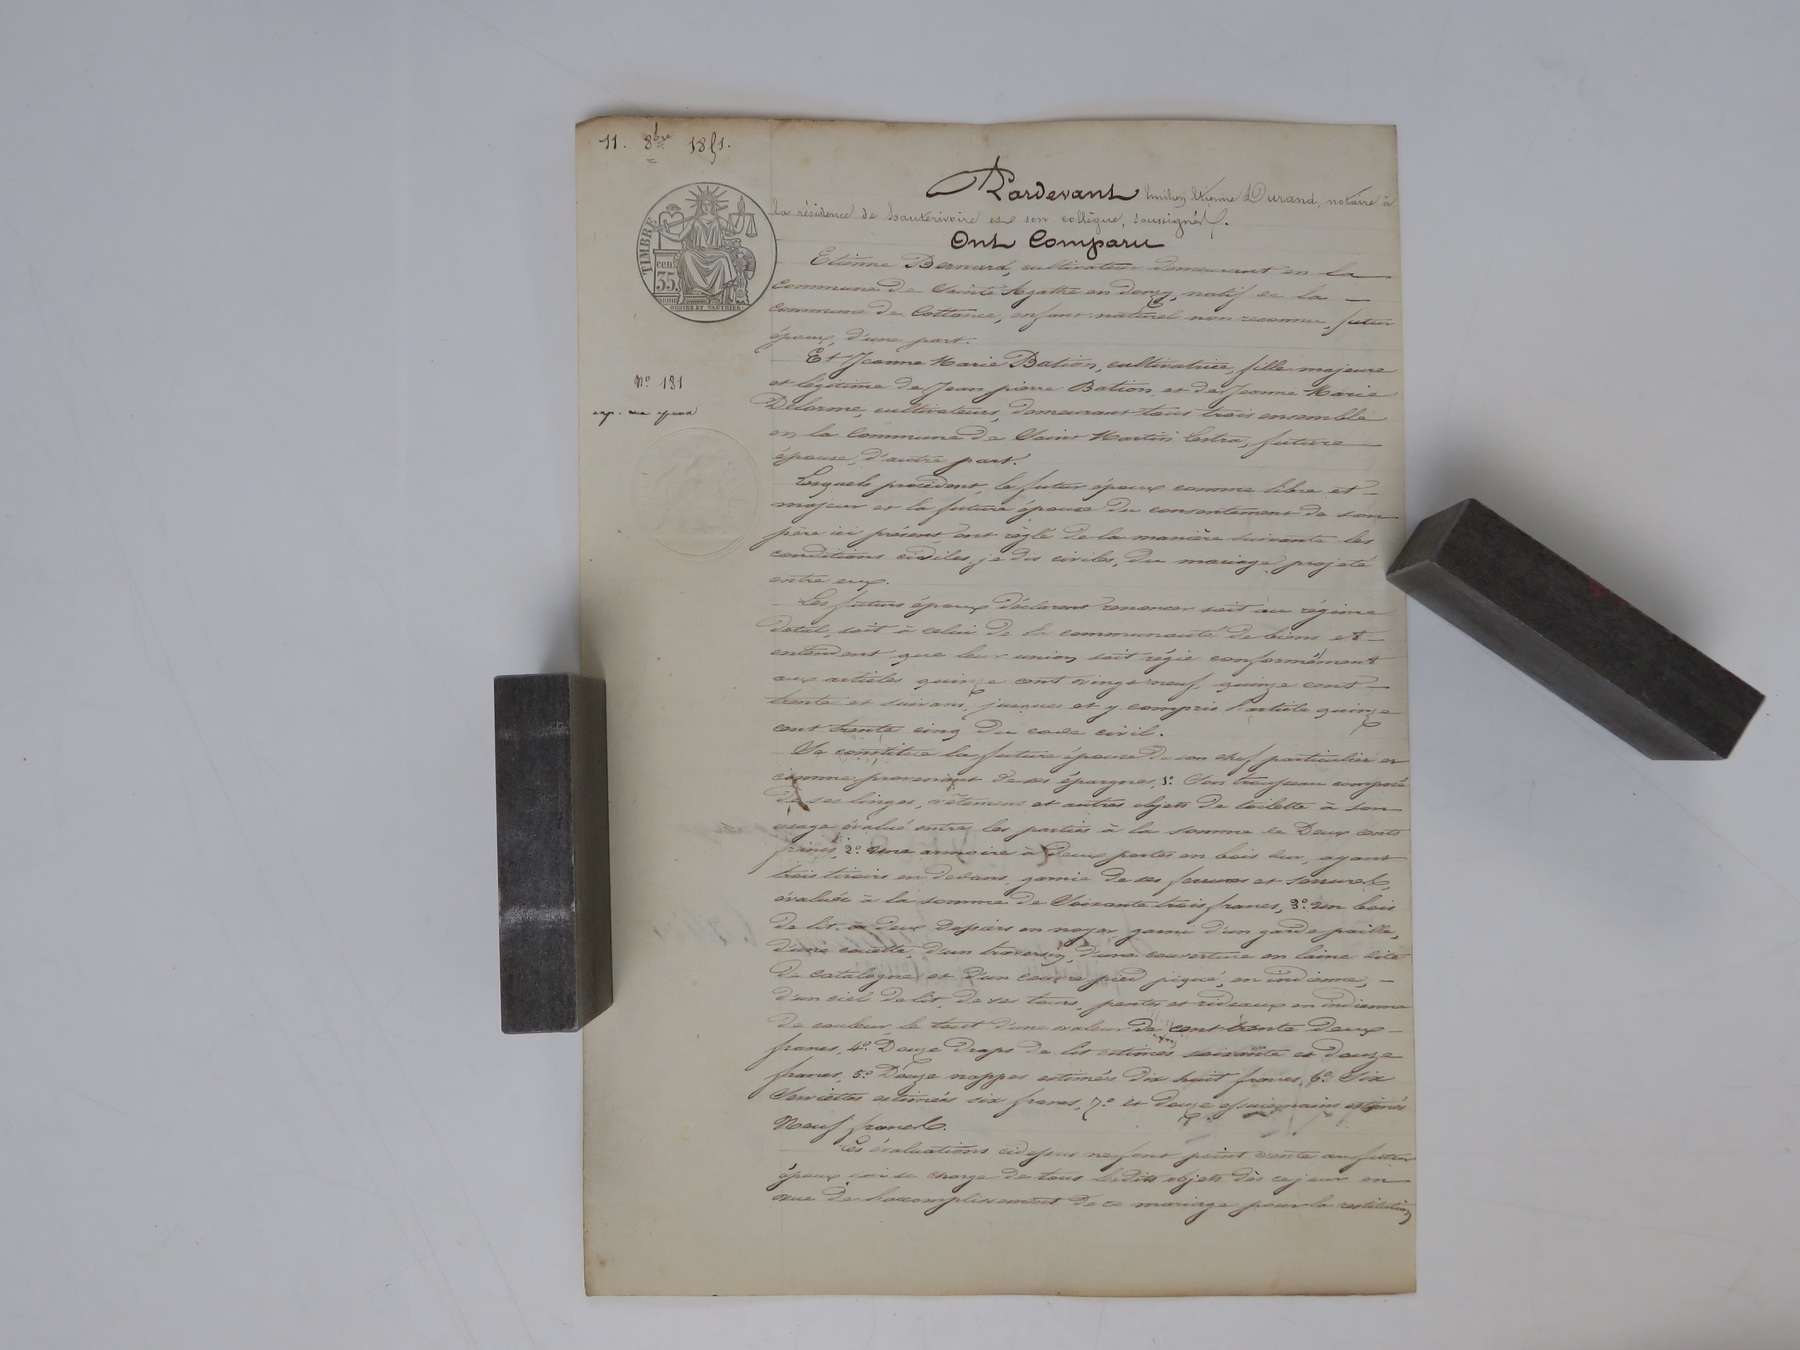 11. 8bre 1851.
Pardevant Emilien Etienne Durand, notaire à
la résidence de hauterivoire et son collègue, soussignés.
Ont Comparu
TIMBRE
cen.
35.
Etienne Bernard, cultivateur demeurant en la
Commune de Sainte Agathe en donzy, natif de la
Commune de Cottance, enfant naturel non reconnu, futur
époux, d'une part.
Et Jeanne Marie Bation, cultivatrice, fille majeure
No 181
et légitime de Jean pierre Bation, et de Jeanne Marie
Delorme, cultivateurs, demeurant tous trois ensemble
en la Commune de Saint Martin Lestra, future
épouse, d'autre part.
Lesquels procédant, le futur époux comme libre et
majeur et la future épouse du consentement de son
père ici présent, ont réglé de la manière suivante les
conditions cidiles, je dis civiles, du mariage projeté
entre eux.
Les futurs époux déclarent renoncer soit au régime
dotal, soit à celui de la communauté de biens et
entendent que leur union soit régie conformément
aux articles quinze cent vingt neuf, quinze cent
trente et suivans, jusques et y compris l'article quinze
cent trente cinq du code civil.
Se constitue la future épouse de son chef particulier et
comme provenant de ses épargnes, 1o Son trousseau composé
de ses linges, vêtemens et autres objets de toilette à son
usage évalué entre les parties à la somme de Deux cents
francs, 2o Une armoire à deux portes en bois dur, ayant
trois tiroirs en dedans, garnie de ses ferrures et serrures,
évaluée à la somme de Soixante trois francs, 3o Un bois
de lit à deux dossiers en noyer garni d'un garde paille,
d'une couette, d'un traversin, d'une couverture en laine dite
de catalogne et d'un couvre pied piqué, en indienne,
d'un ciel de lit, de ses tours, pentes et rideaux en indienne
de couleur le tout d'une valeur de cent trente deux
francs, 4o Douze draps de lit estimés soixante et douze
francs, 5o Douze nappes estimés dix huit francs, 6o Six
Serviettes estimées six francs, 7o et douze essuiemains estimés
Neuf francs.
Les évaluations cidessus ne font point vente au futur
époux qui se charge de tous lesdits objets dès ce jour en
vue de l'accomplissement de ce mariage pour la restitution